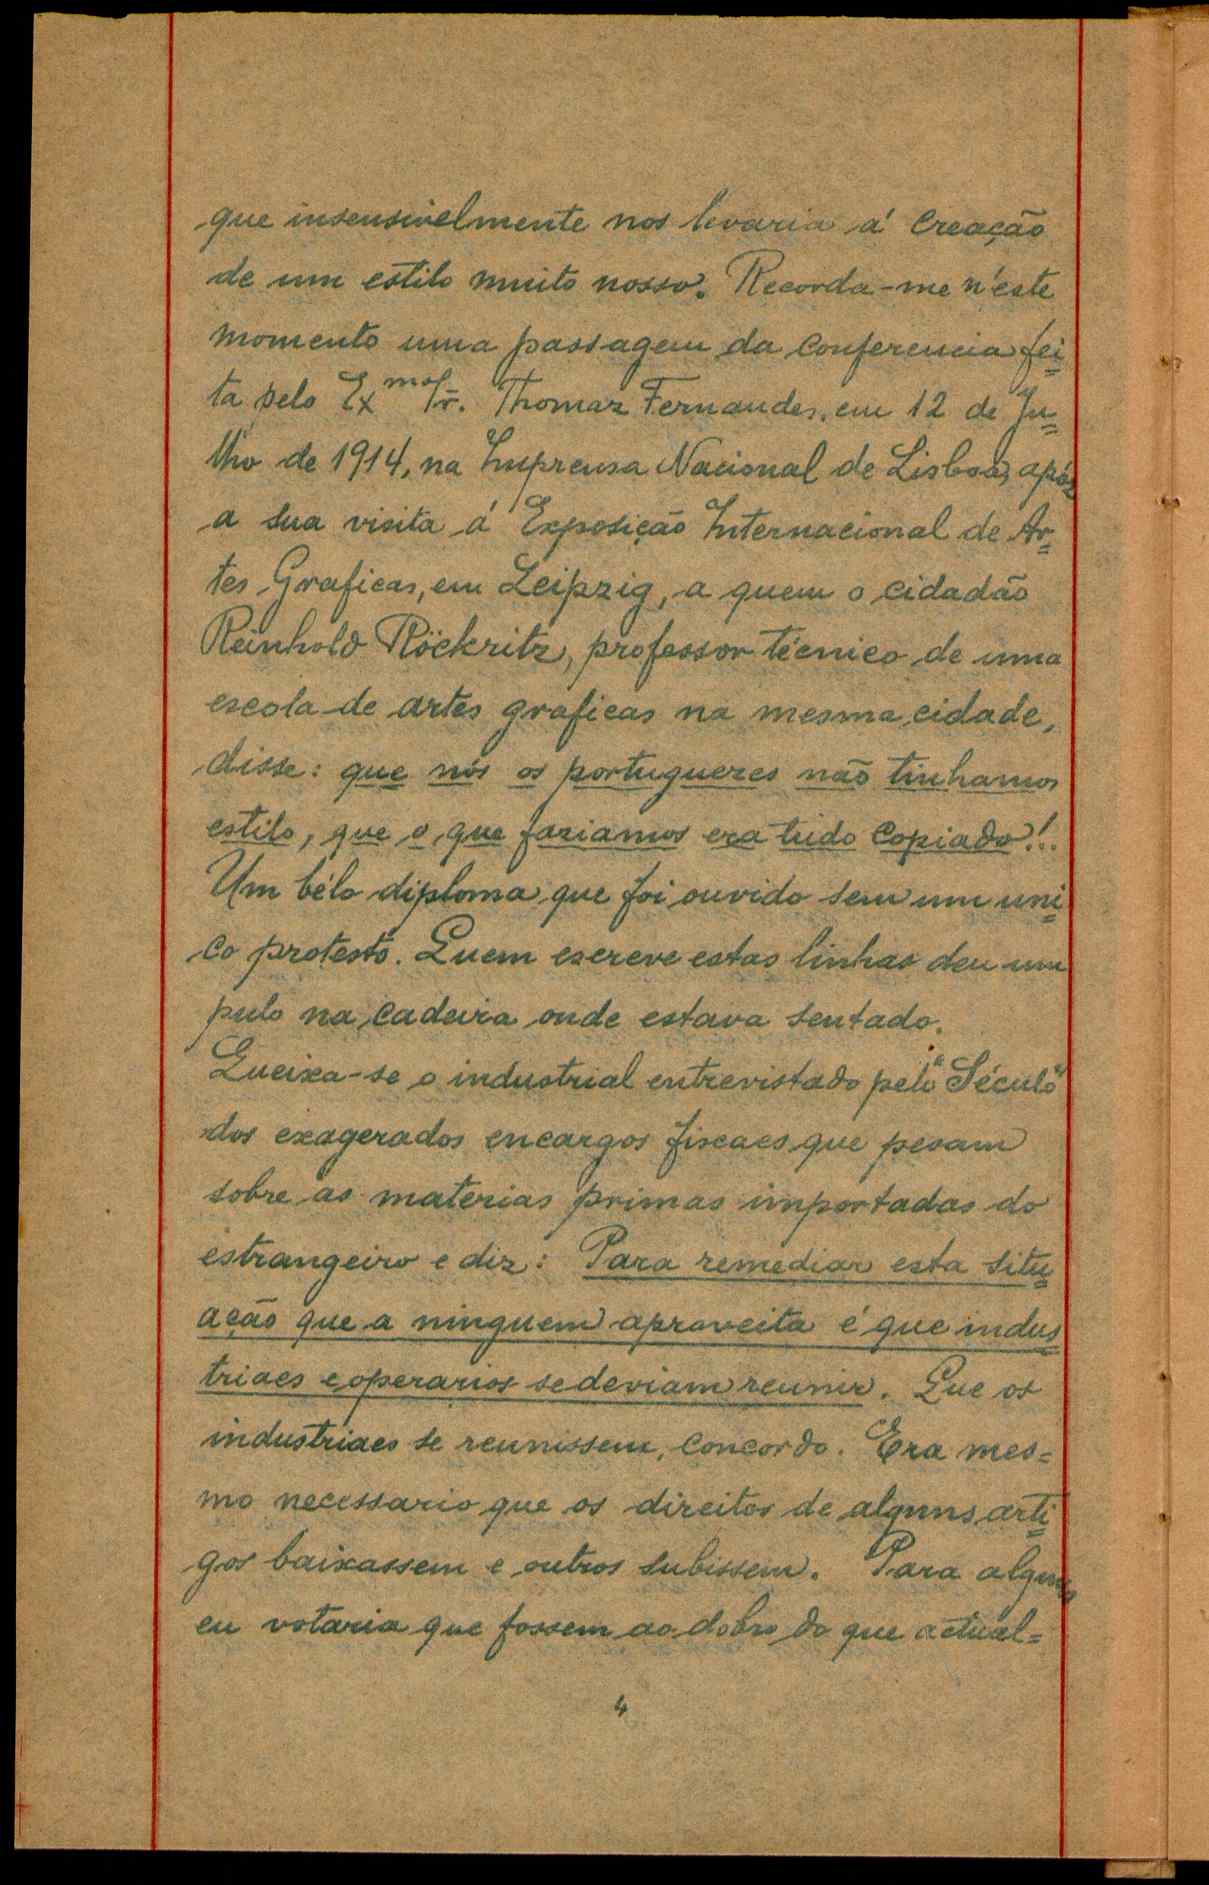 que insensivelmente nos levaria á creação
de um estilo muito nosso. Recorda-me n'este
momento uma passagem da conferencia fei=
ta pelo Exmo Sr. Thomaz Fernandes, em 12 de Ju=
lho de 1914, na Imprensa Nacional de Lisboa, após
a sua visita á Exposição Internacional de Ar=
tes Graficas, em Leipzig, a quem o cidadão
Reinhold Röckritz, professor técnico de uma
escola de artes graficas na mesma cidade,
disse: que nós os portuguezes não tinhamos
estilo, que o que faziamos era tudo copiado!..
Um bélo diploma que foi ouvido sem um uni=
co protesto. Quem escreve estas linhas deu um
pulo na cadeira onde estava sentado.
Queixa-se o industrial entrevistado pelo "Século"
dos exagerados encargos fiscaes que pesam
sobre as materias primas importadas do
estrangeiro e diz: Para remediar esta situ=
ação que a ninguem aproveita é que indus=
triaes e operarios se deviam reunir. Que os
industriaes se reunissem, concordo. Era mes=
mo necessario que os direitos de alguns arti=
gos baixassem e outros subissem. Para alguns
eu votaria que fossem ao dobro do que actual=
4